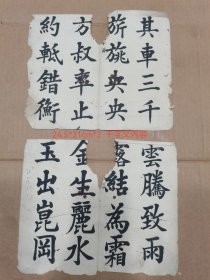 其車三千
旂旐央央
方叔率止
約軧錯衡
雲騰致雨
露結為霜
金生麗水
玉出崑岡